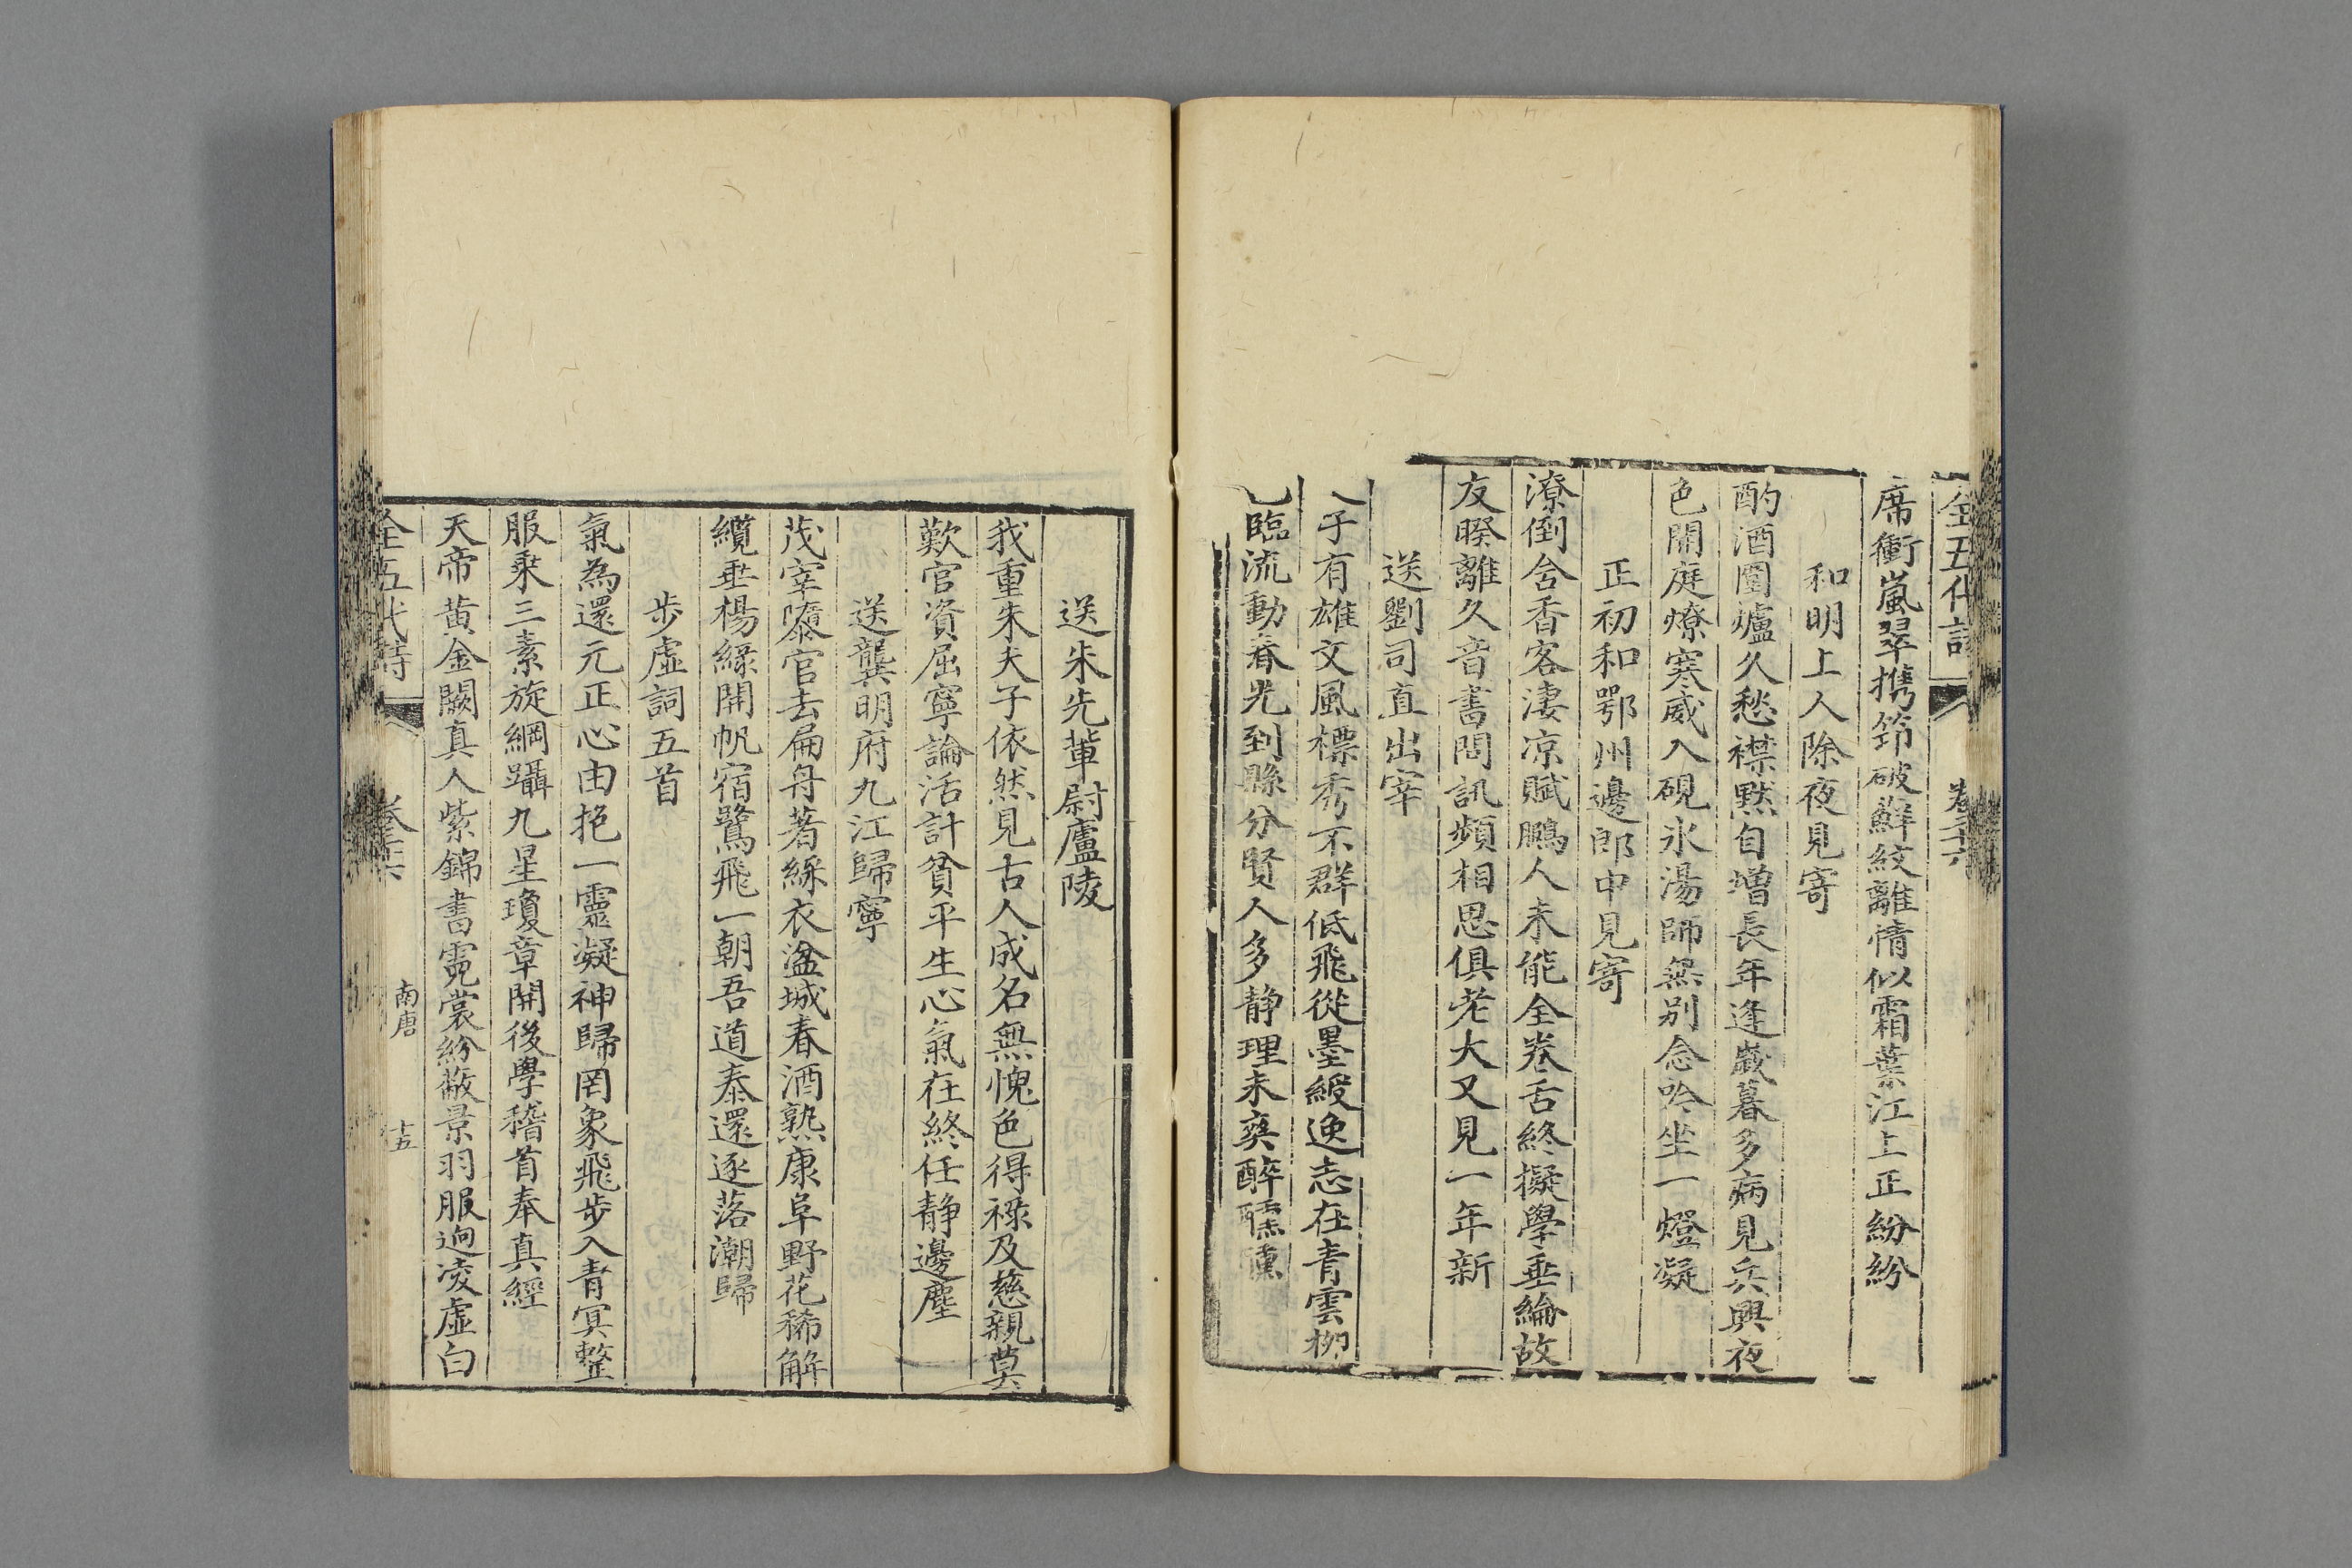 全五代詩 卷三十六
席衝嵐翠携筇破蘚紋離情似霜葉江上正紛紛
和明上人除夜見寄
酌酒圍爐久愁襟黙自增長年逢歲暮多病見兵興夜
色開庭燎寒威入硯氷湯師無別念吟坐一燈凝
正初和鄂州邊郎中見寄
潦倒含香客淒凉賦鵩人未能全卷舌終擬學垂綸故
友暌離久音書問訊頻相思俱老大又見一年新
送劉司直出宰
子有雄文風標秀不群低飛從墨綬逸志在青雲柳
臨流動春光到縣分賢人多静理未爽醉醺醺
送朱先輩尉廬陵
我重朱夫子依然見古人成名無愧色得祿及慈親莫
歎官資屈寧論活計貧平生心氣在終任靜邊塵
送龔明府九江歸寧
茂宰隳官去扁舟著綵衣湓城春酒熟康阜野花稀解
纜垂楊緑開帆宿鷺飛一朝吾道泰還逐落潮歸
步虛詞五首
氣為還元正心由抱一靈凝神歸罔象飛步入青冥整
服乘三素旋綱躡九星瓊章開後學稽首奉真經
天帝黄金闕真人紫錦書霓裳紛蔽景羽服迥凌虛白
全五代詩 卷三十六 南唐 十五